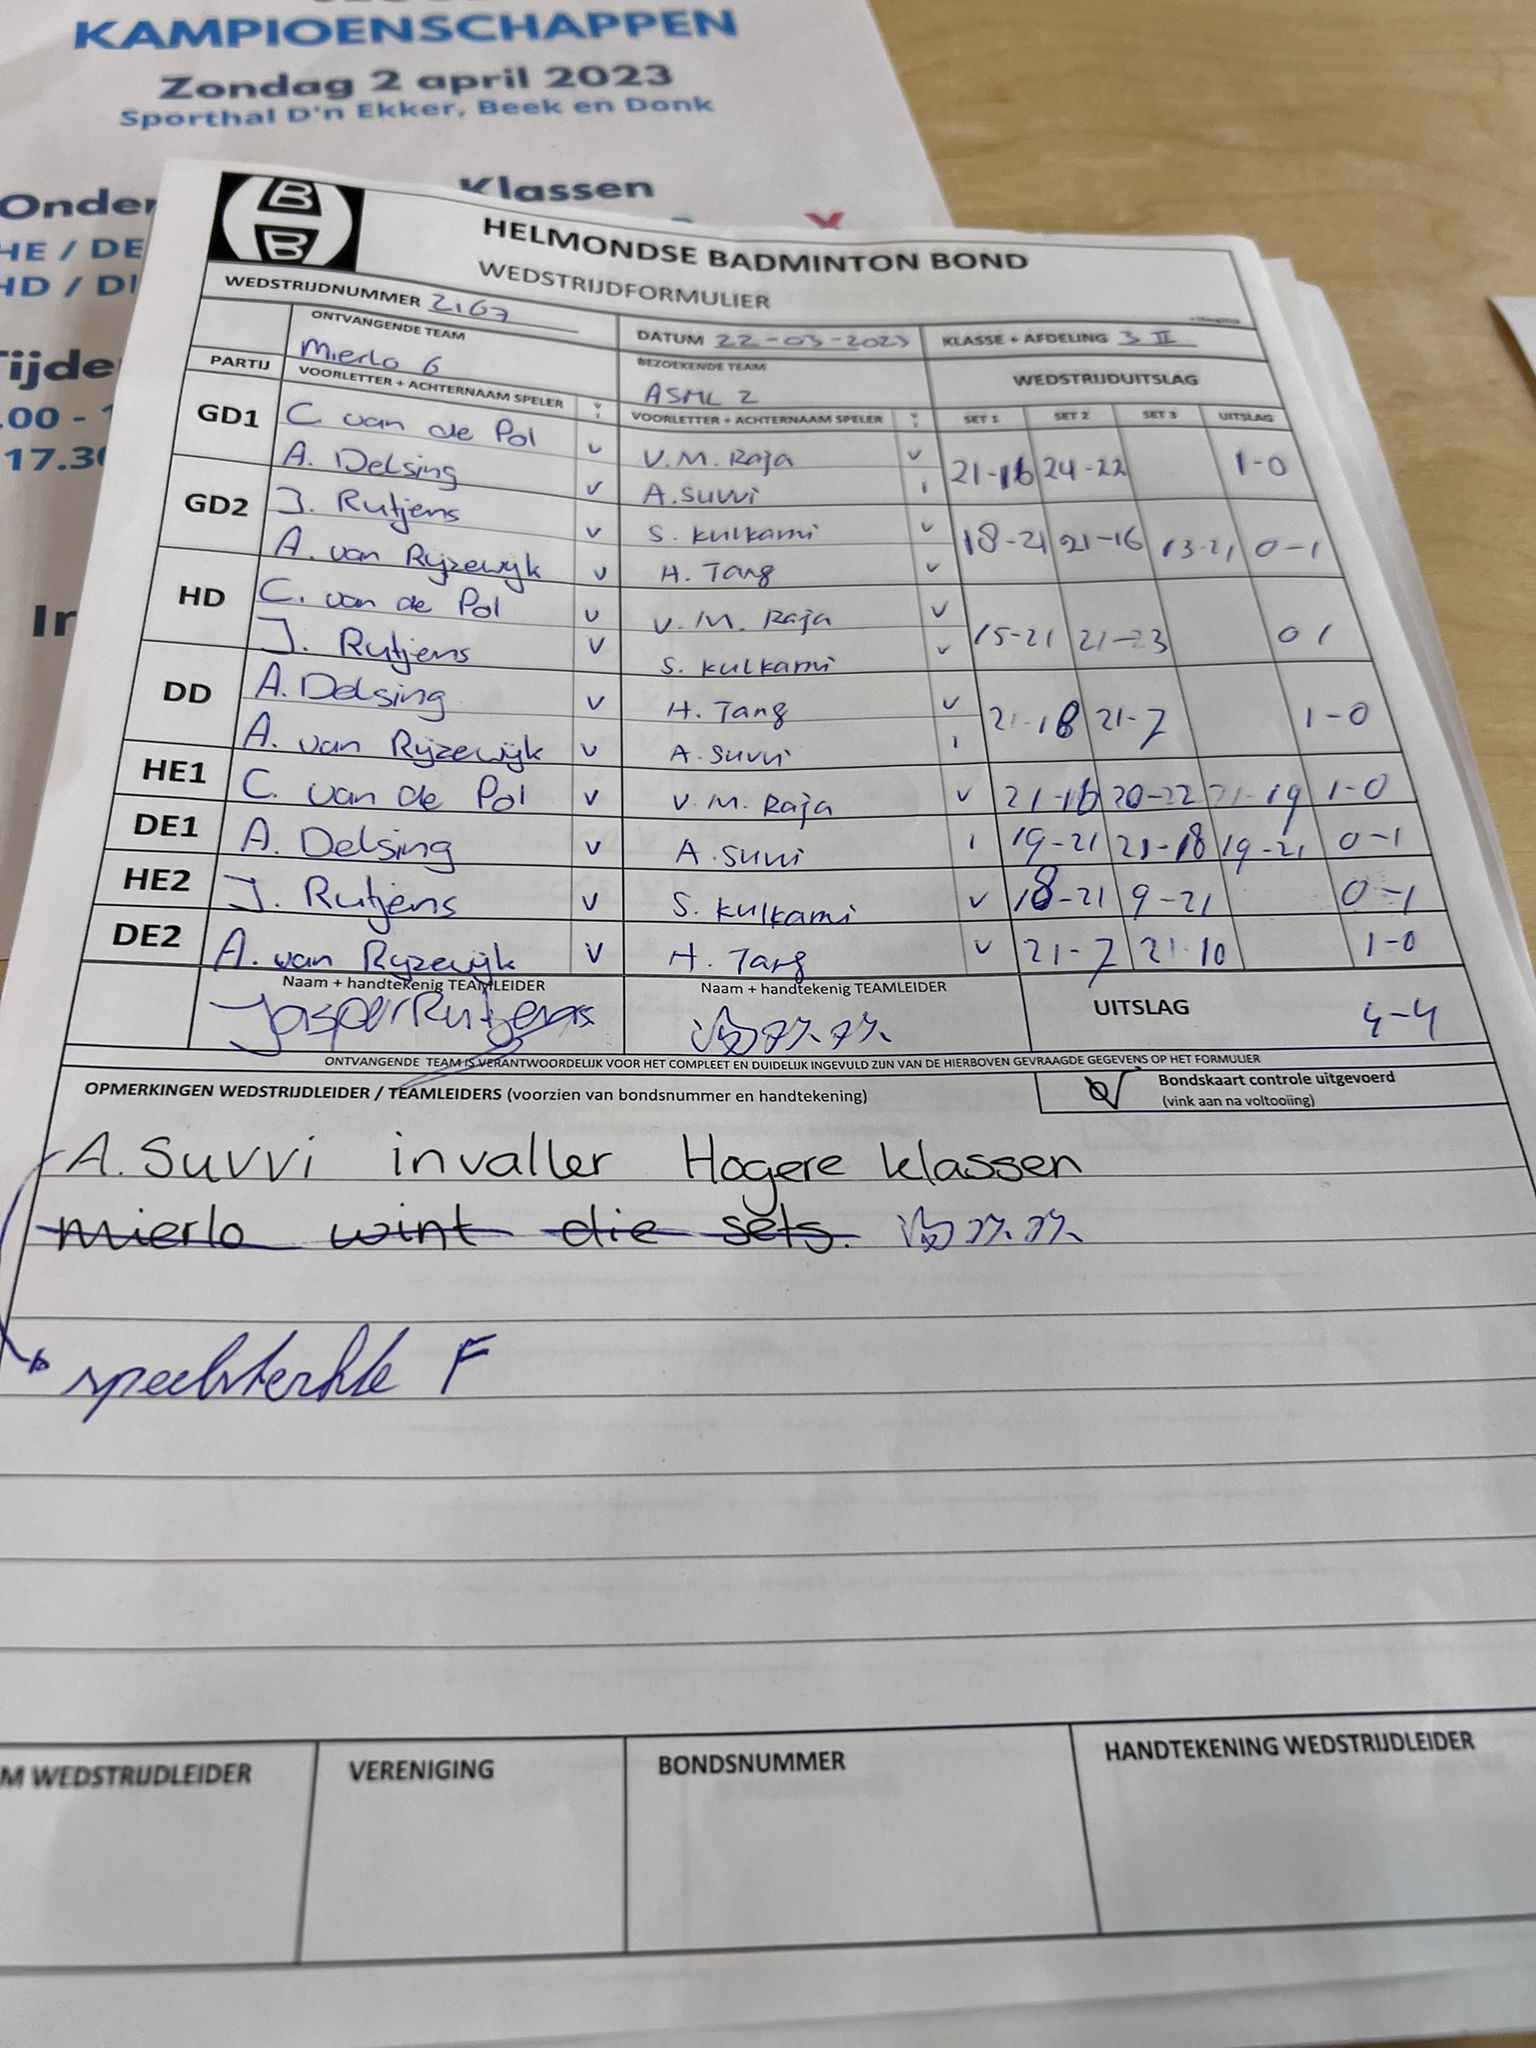 KAMPIOENSCHAPPEN
Zondag 2 april 2023
Sporthal D'n Ekker, Beek en Donk
Klassen
HE / DE
.00 -
17.30
B
B
HELMONDSE BADMINTON BOND
WEDSTRIJDFORMULIER
WEDSTRIJDNUMMER 2167
ONTVANGENDE TEAM DATUM 22-03-2023 KLASSE + AFDELING 3 II
Mierlo 6 BEZOEKENDE TEAM WEDSTRIJDUITSLAG
ASML 2
PARTIJ VOORLETTER + ACHTERNAAM SPELER V I VOORLETTER + ACHTERNAAM SPELER V I SET 1 SET 2 SET 3 UITSLAG
GD1 C van de Pol v V.M. Raja v 21-16 24-22 1-0
A. Delsing v A. Suvvi i
GD2 J. Rutjens v S. Kulkarni v 18-21 21-16 13-21 0-1
A. van Rijzewijk v H. Tang v
HD C. van de Pol v V. M. Raja v 15-21 21-23 0 1
J. Rutjens v S. Kulkarni v
DD A. Delsing v H. Tang v 21-18 21-7 1-0
A. van Rijzewijk v A. Suvvi i
HE1 C. van de Pol v V. M. Raja v 21-16 20-22 21-19 1-0
DE1 A. Delsing v A. Suvvi i 19-21 21-18 19-21 0-1
HE2 J. Rutjens v S. Kulkarni v 18-21 9-21 0-1
DE2 A. van Rijzewijk v H. Tang v 21-7 21-10 1-0
Naam + handtekenig TEAMLEIDER Naam + handtekenig TEAMLEIDER UITSLAG 4-4
Jasper Rutjens
ONTVANGENDE TEAM IS VERANTWOORDELIJK VOOR HET COMPLEET EN DUIDELIJK INGEVULD ZIJN VAN DE HIERBOVEN GEVRAAGDE GEGEVENS OP HET FORMULIER
OPMERKINGEN WEDSTRIJDLEIDER / TEAMLEIDERS (voorzien van bondsnummer en handtekening)
Bondskaart controle uitgevoerd
(vink aan na voltooiing)
A. Suvvi invaller Hogere klassen
mierlo wint die sets.
speelsterkte F
M WEDSTRIJDLEIDER VERENIGING BONDSNUMMER HANDTEKENING WEDSTRIJDLEIDER